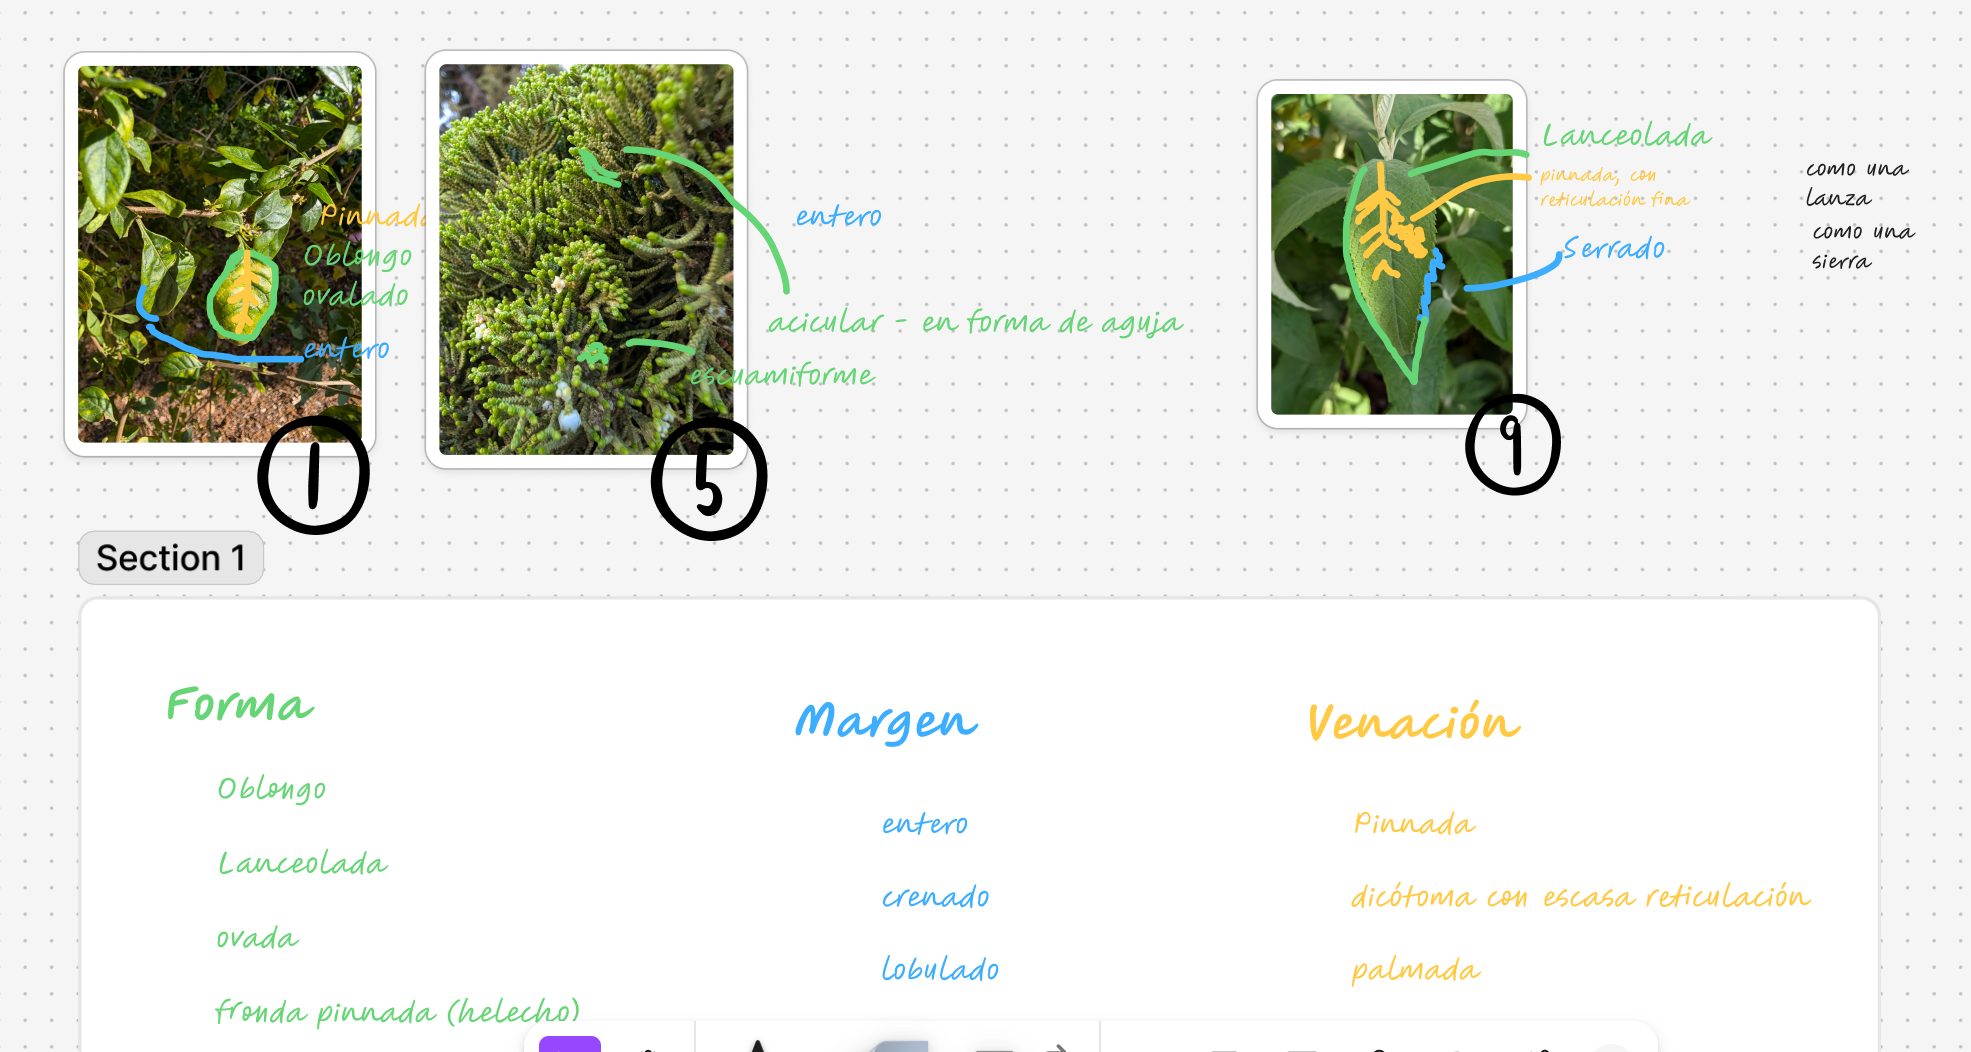 Pinnada
Oblongo
ovalado
entero
1
entero
acicular - en forma de aguja
escuamiforme
5
Lanceolada
pinnada, con
reticulación fina
Serrado
como una
lanza
como una
sierra
9
Section 1
Forma
Oblongo
Lanceolada
ovada
fronda pinnada (helecho)
Margen
entero
crenado
lobulado
Venación
Pinnada
dicótoma con escasa reticulación
palmada